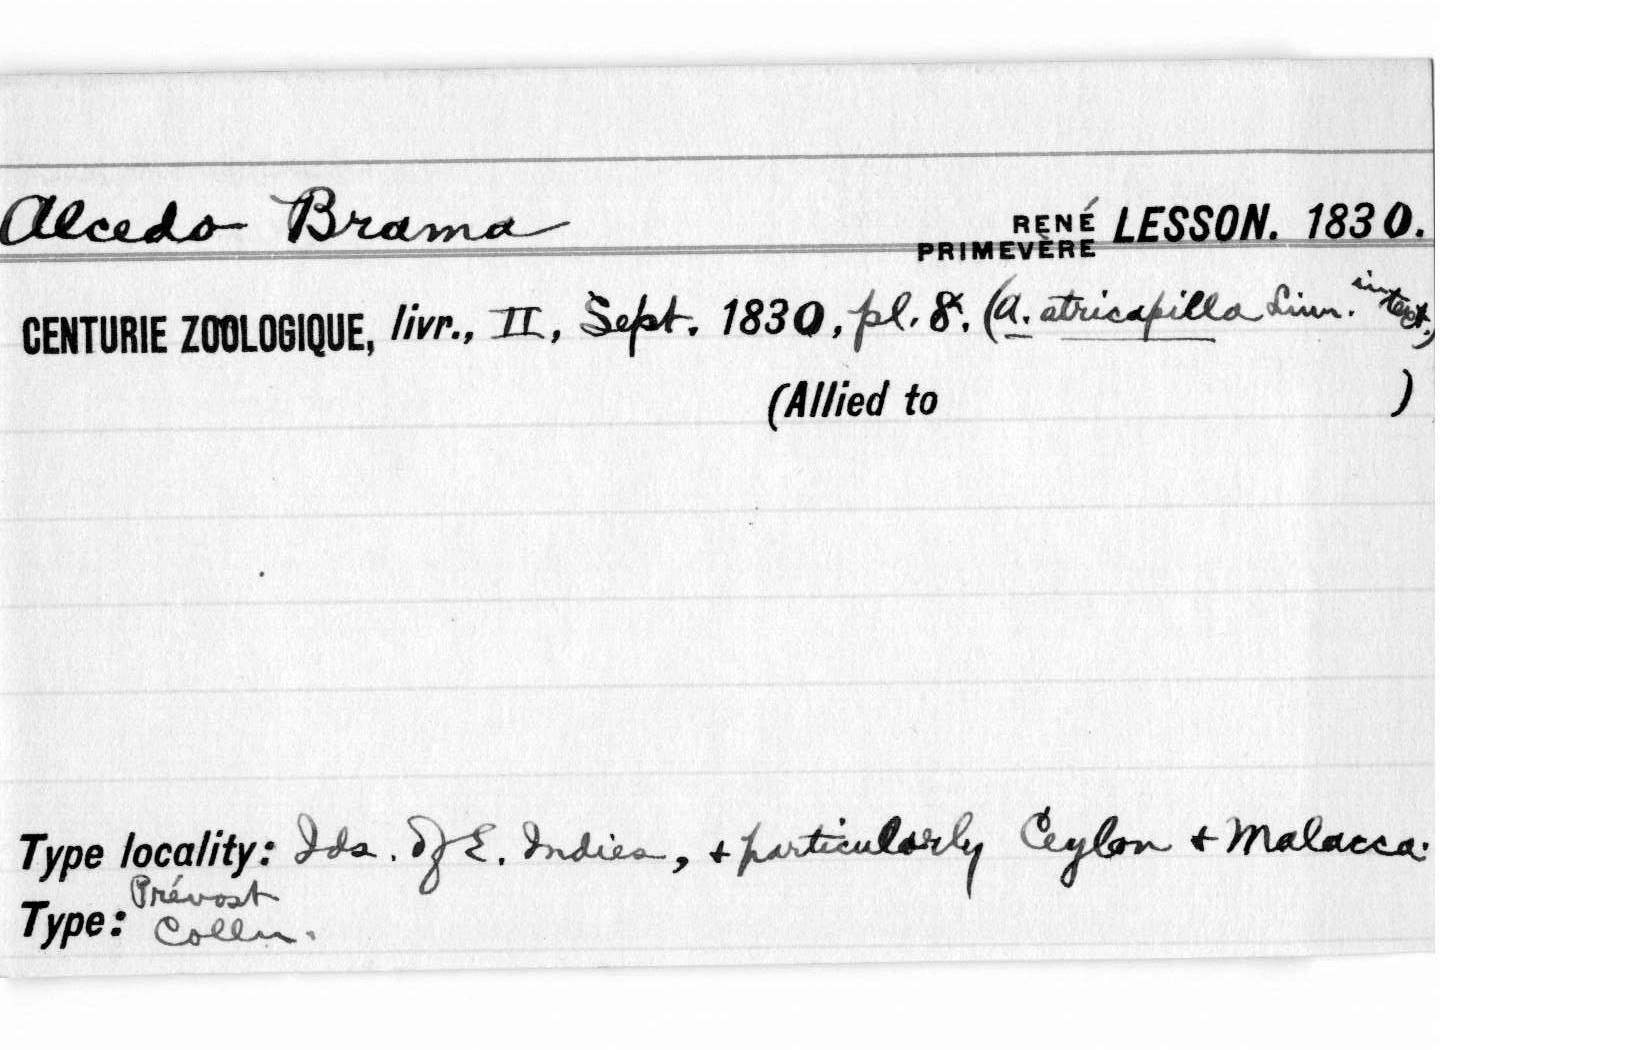 Alcedo Brama RENÉ PRIMEVÈRE LESSON. 1830.
CENTURIE ZOOLOGIQUE, livr., II, Sept. 1830, pl. 8. (A. atricapilla Linn. in text.)
(Allied to )
Type locality: Ids. of E. Indies, + particularly Ceylon + Malacca.
Type: Prévost Colln.